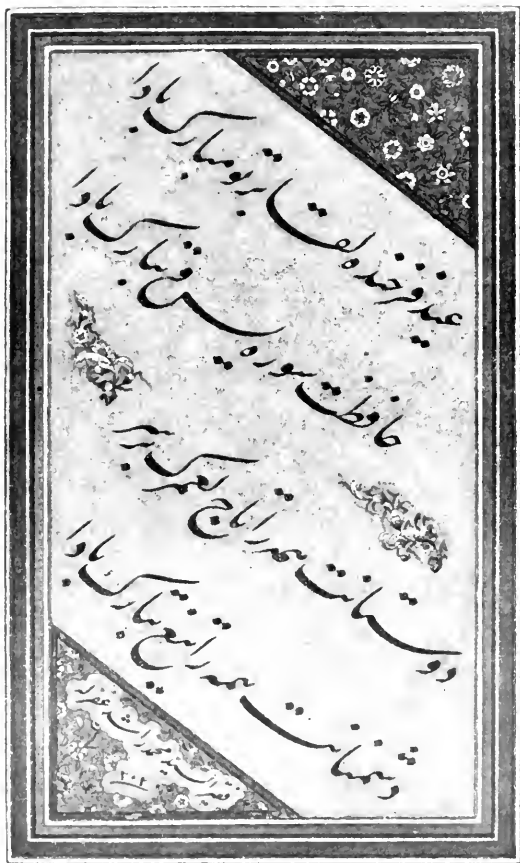 عید فرخنده لقا بر تو مبارک بادا
حافظت سوره یس و تبارک بادا
دوستانت همه را تاج لعمرک بر سر
دشمنانت همه را تیغ بتارک بادا
السید محمد راشد غفر له